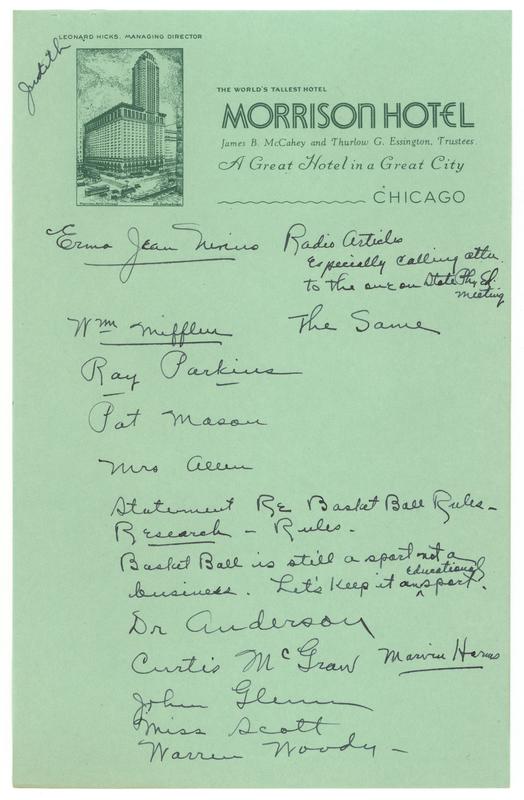 LEONARD HICKS, MANAGING DIRECTOR
Judith
THE WORLD'S TALLEST HOTEL
MORRISON HOTEL
James B. McCahey and Thurlow G. Essington, Trustees
A Great Hotel in a Great City
CHICAGO
Erma Jean Radio Articles
Especially calling atten.
to the one on State Phy Ed
meeting
Wm Mifflin The Same
Ray Parkins
Pat Mason
Mrs Allen
Statement Re Basket Ball Rules -
Research - Rules -
Basket Ball is still a sport not a
educational
business. Let's keep it an sport.
Dr Anderson
Curtis McGraw Marvin
John Glenn
Miss Scott
Warren Woody -